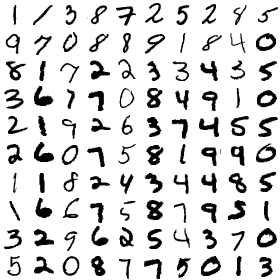 1 1 3 8 7 2 5 2 4 5
9 7 0 8 8 9 1 8 4 0
8 1 7 2 2 3 3 4 3 5
3 6 1 7 0 8 4 9 1 0
2 1 9 2 6 3 7 4 5 5
2 6 0 7 5 8 1 9 9 0
1 1 8 2 4 3 4 4 8 5
1 6 6 7 5 8 7 9 5 1
3 2 9 6 2 5 4 3 7 0
5 2 0 8 7 7 5 0 1 3